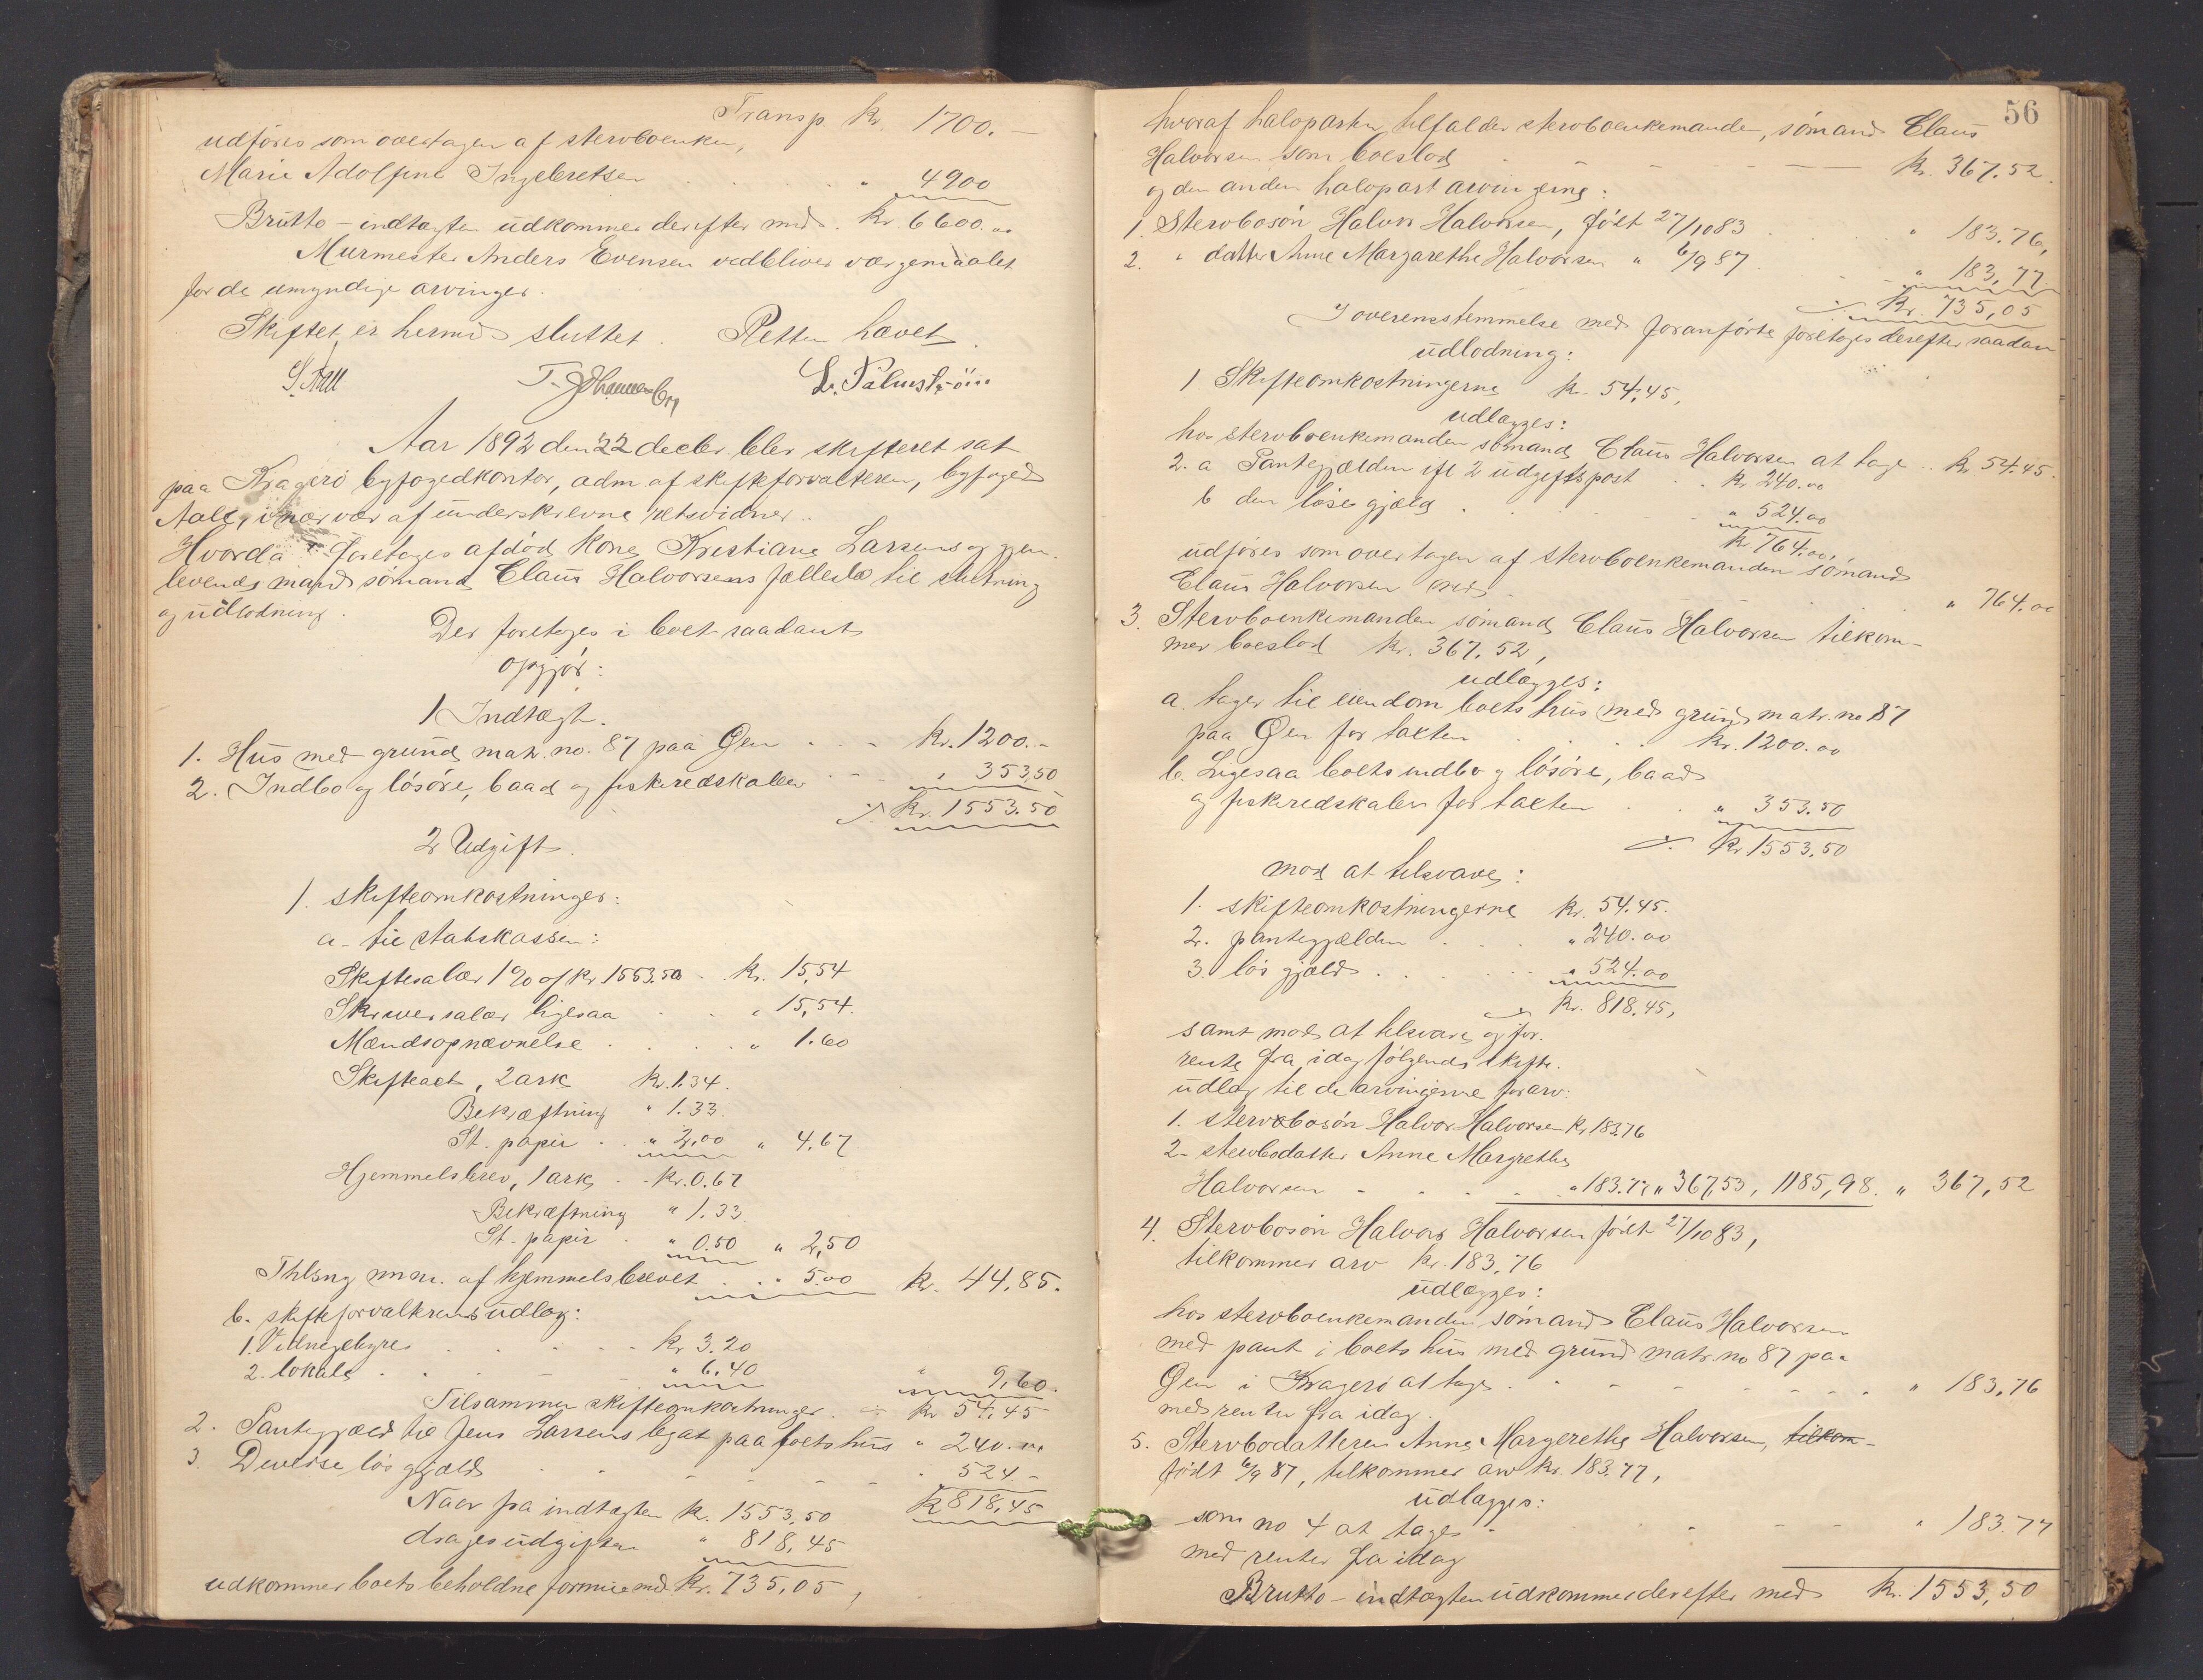 Transp kr. 1700.-
udføres som overtagen af stervboenken,
Marie Adolfine Ingebretsen . . . . " 4900
Brutto-indtægten udkommer derefter med. Kr. 6600.00
Murmester Anders Evensen vedbliver værgemaalet
for de umyndige arvinger.
Skiftet er hermed sluttet. Retten hævet.
S. Aall L. Palmstrøm
Aar 1892 den 22 decbr. blev skifteret sat
paa Kragerø byfogedkontor, adm af skifteforvalteren, byfoged
Aall, i nærvær af underskrevne retsvidner.
Hvorda: Foretoges afdød kone Kristiane Larsens og gjen-
levende mand sømand Claus Halvorsens fællesbo til slutning
og udlodning.
Der foretoges i boet saadant
opgjør:
1 Indtægt.
1. Hus med grund matr. no. 87 paa Øen . . - Kr. 1200.-
2. Indbo og løsøre, baad og fiskeredskaber . - - " 353,50
Kr. 1553.50
2 Udgift.
1. skifteomkostninger:
a- til statskassen:
Skiftesalær 1% af Kr 1553.50 - . Kr. 15,54
Skriversalær ligesaa . . " 15,54.
Mændsopnævnelse . . . . " 1.60
Skifteact, 2 ark Kr. 1.34.
Bekræftning " 1.33.
St. papir . . " 2,00 " 4.67
Hjemmelsbrev, 1 ark . - Kr. 0.67
Bekræftning " 1.33
St. papir . " 0.50 " 2,50
Thlsng m.m. af hjemmelsbrevet . . . 5.00 Kr. 44,85.
b. skifteforvalterens udlæg:
1. Vidnegebyr . . . - - Kr 3.20
2. lokale . . . - - " 6,40 " 9,60.
Tilsammen skifteomkostninger . - Kr 54,45
2. Pantegjæld til Jens Larsens legat paa boets hus " 240.00
3. Diverse løs gjæld . . - - - . 524.-
Kr 818,45
Naar fra indtægten Kr. 1553,50
drages udgiften " 818,45
udkommer boets beholdne formue med Kr. 735,05,
56
hvoraf halvparten tilfalder stervboenkemanden, sømand Claus
Halvorsen som boeslod . - - - - Kr. 367.52.
og den anden halvpart arvingerne:
1. Stervbosøn Halvor Halvorsen, født 27/10 83 . . . " 183.76,
2. " datter Anne Margarethe Halvorsen " 6/9 87 . - " 183,77
Kr. 735,05
I overensstemmelse med foranførte foretoges derefter saadan
udlodning:
1. Skifteomkostningerne Kr. 54,45,
udlægges:
hos stervboenkemanden sømand Claus Halvorsen at tage .. Kr 54.45.
2. a Pantegjælden ifl 2 udgiftspost . . Kr 240.00
b den løse gjæld . . . . - - " 524.00
Kr 764.00,
udføres som overtagen af stervboenkemanden sømand
Claus Halvorsen med - . . . " 764.00
3. Stervboenkemanden sømand Claus Halvorsen tilkom-
mer boeslod Kr. 367.52,
udlægges:
a. tager til eiendom boets hus med grund matr. no 87
paa Øen for taxten . . . . Kr. 1200.00
b. Ligesaa boets indbo og løsøre, baad
og fiskeredskaber for taxten . . " 353.50
Kr 1553.50
mod at tilsvare:
1. skifteomkostningerne Kr. 54.45.
2. pantegjælden . . . " 240.00
3. løs gjæld . . . . - - " 524.00
Kr. 818,45,
samt mod at tilsvare og for-
rente fra idag følgende skifte-
udlæg til de arvingerne for arv:
1. stervbosøn Halvor Halvorsen Kr. 183.76
2- stervbodatter Anne Margrethe
Halvorsen - - - - " 183.77 " 367,53, 1185,98. " 367,52
4. Stervbosøn Halvor Halvorsen født 27/10 83,
tilkommer arv Kr. 183,76
udlægges:
hos stervboenkemanden sømand Claus Halvorsen
med pant i boets hus med grund matr. no 87 paa
Øen i Kragerø at tage . . - - - - . . " 183,76
med renter fra idag.
5. Stervbodatteren Anne Margrethe Halvorsen, tilkom-
født 6/9 87, tilkommer arv Kr. 183.77,
udlægges:
som no 4 at tages - . . - - " 183.77
med renter fra idag
Brutto-indtægten udkommer derefter med Kr. 1553,50